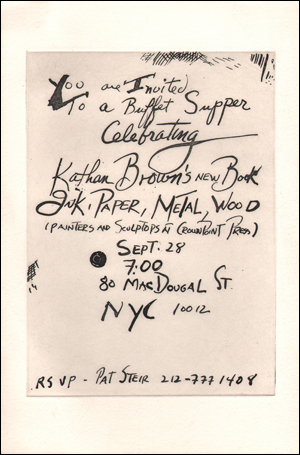 You are Invited
To a Buffet Supper
Celebrating
Kathan Brown's NEW Book
INK, PAPER, METAL, WOOD
(PAINTERS AND SCULPTORS AT CROWN POINT PRESS)
SEPT. 28
7:00
80 MACDOUGAL ST.
NYC 10012
RSVP - PAT STEIR 212-777 1408